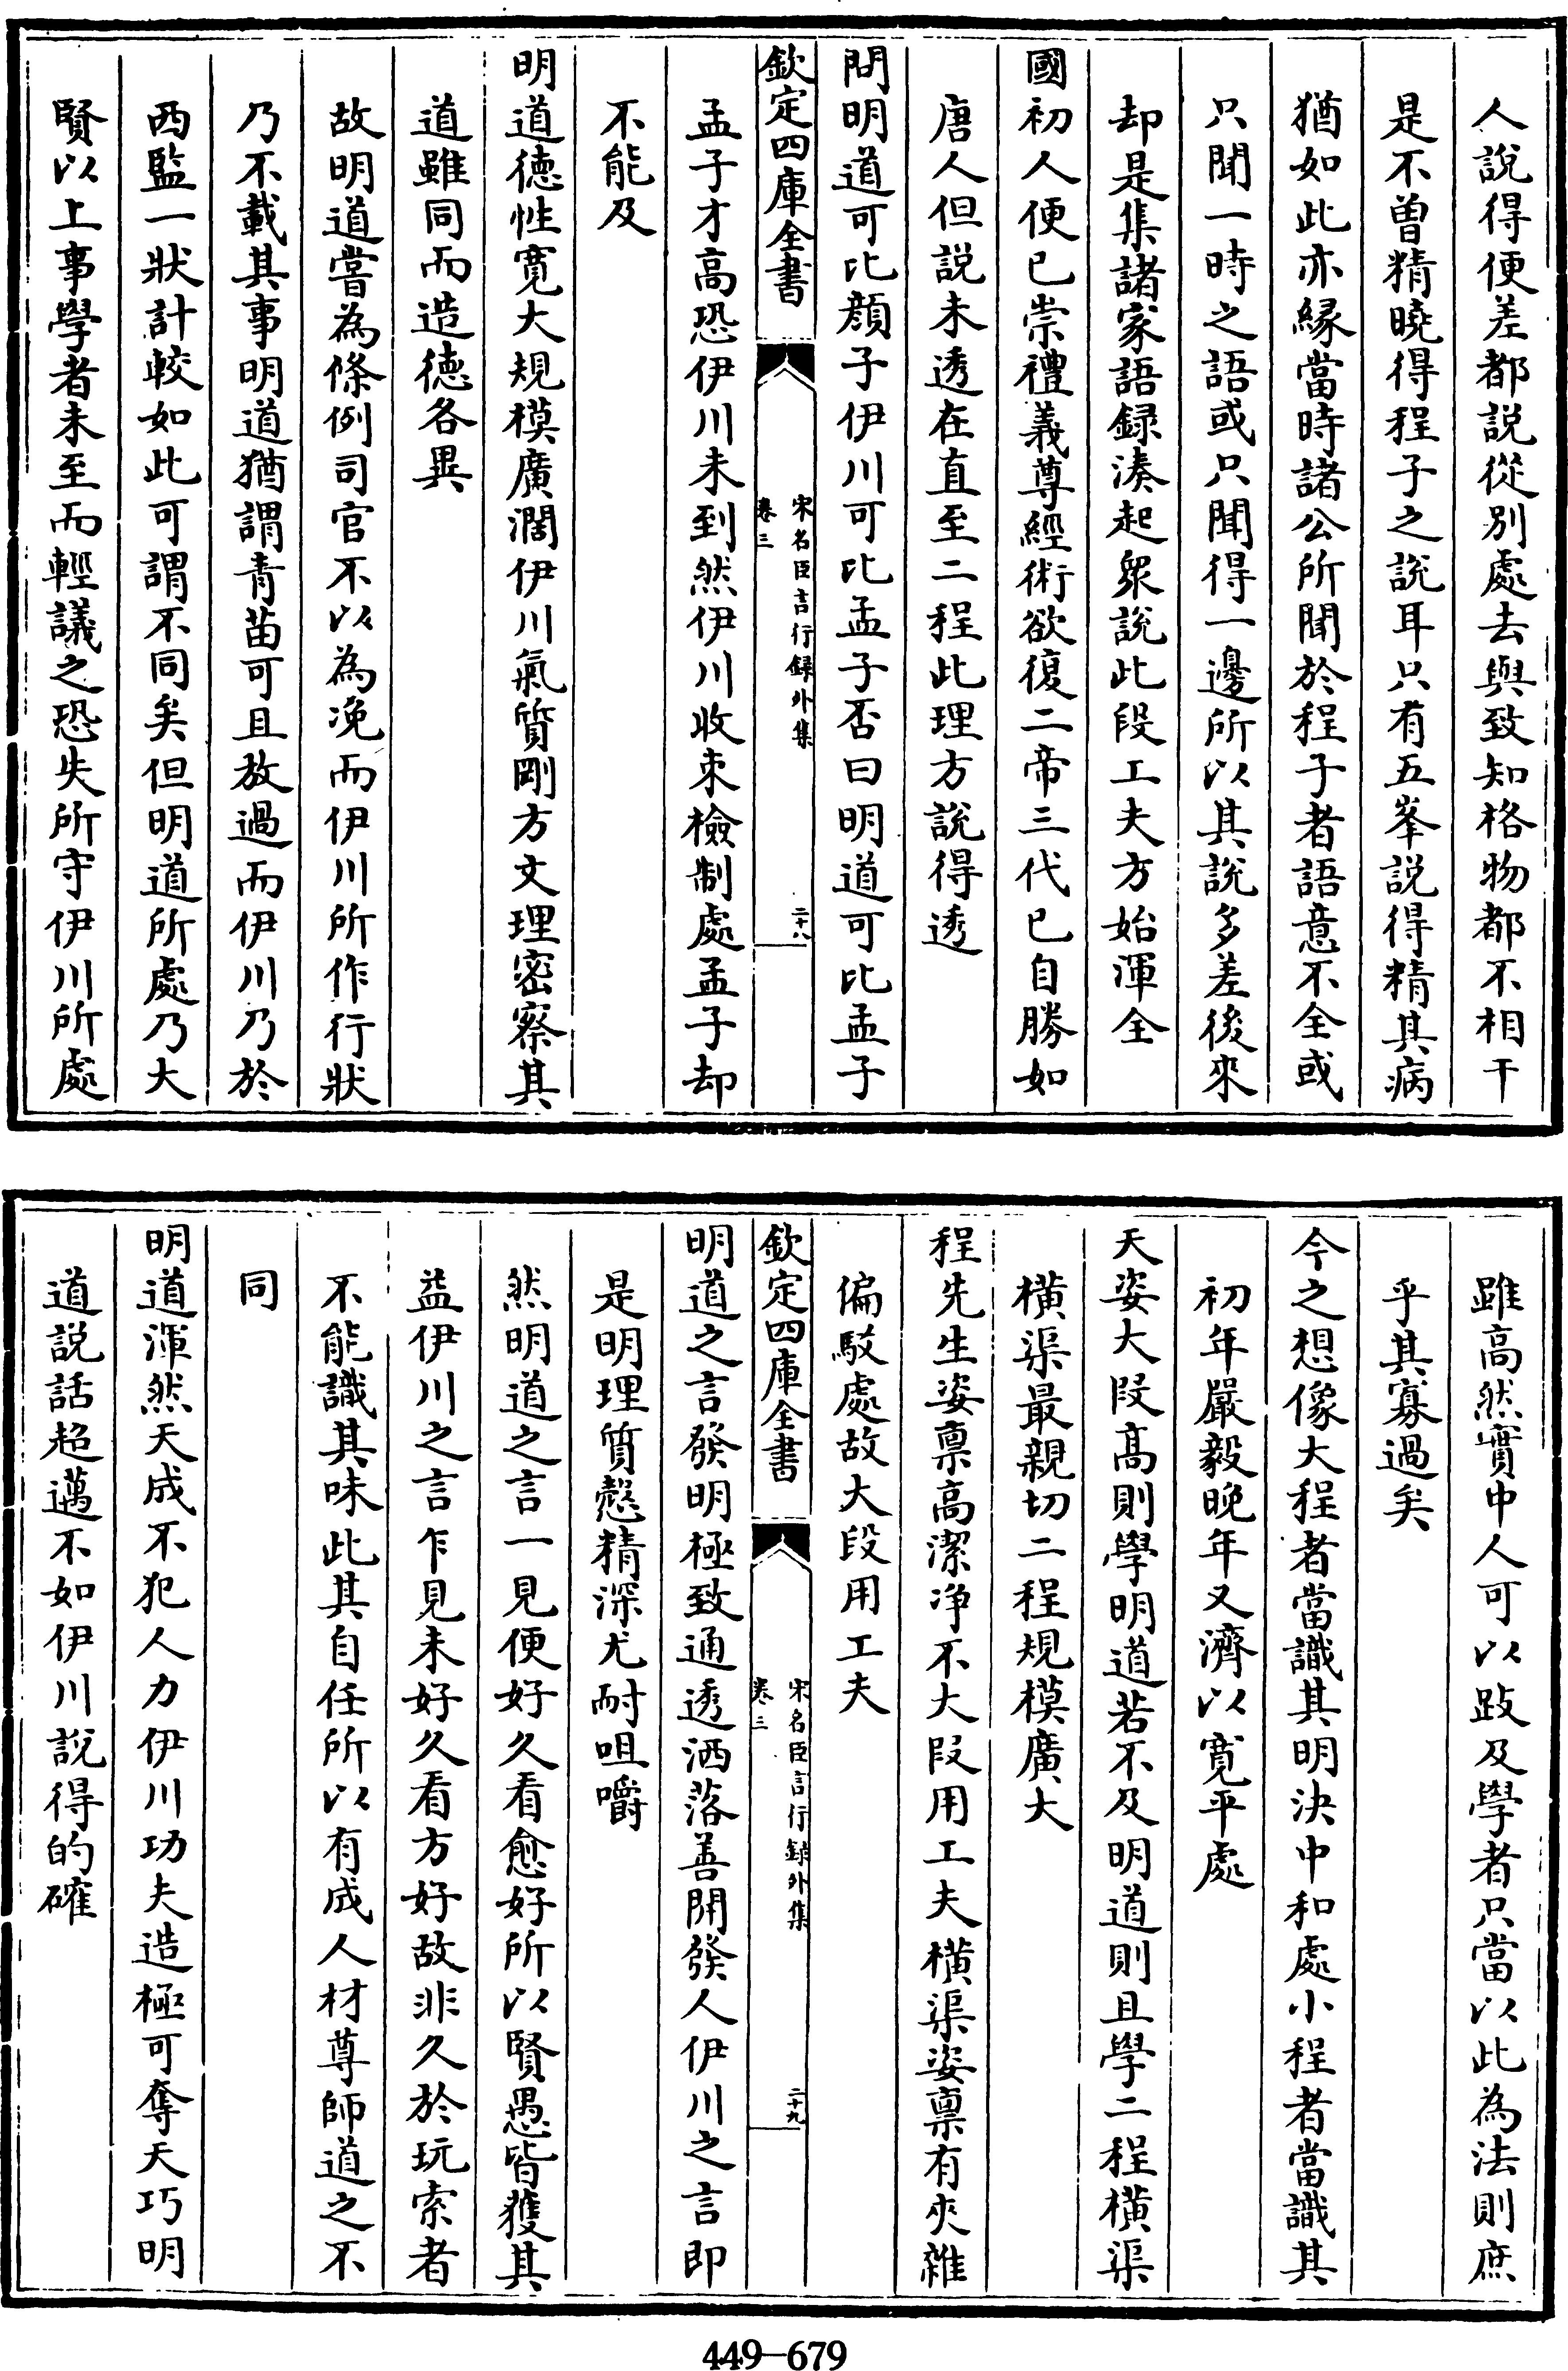 人說得便差都說從別處去與致知格物都不相干
是不曾精曉得程子之說耳只有五峯說得精其病
猶如此亦緣當時諸公所聞於程子者語意不全或
只聞一時之語或只聞得一邊所以其說多差後來
却是集諸家語録湊起衆說此段工夫方始渾全
國初人便已崇禮義尊經術欲復二帝三代已自勝如
唐人但說未透在直至二程此理方說得透
問明道可比顔子伊川可比孟子否曰明道可比孟子
欽定四庫全書
宋名臣言行録外集
卷三
二十八
孟子才高恐伊川未到然伊川收束檢制處孟子却
不能及
明道德性寛大規模廣濶伊川氣質剛方文理密察其
道雖同而造德各異
故明道嘗為條例司官不以為浼而伊川所作行狀
乃不載其事明道猶謂青苗可且放過而伊川乃於
西監一狀計較如此可謂不同矣但明道所處乃大
賢以上事學者未至而輕議之恐失所守伊川所處
雖高然實中人可以跂及學者只當以此為法則庶
乎其寡過矣
今之想像大程者當識其明決中和處小程者當識其
初年嚴毅晚年又濟以寛平處
天姿大段高則學明道若不及明道則且學二程橫渠
橫渠最親切二程規模廣大
程先生姿禀高潔净不大段用工夫橫渠姿禀有夾雜
偏駁處故大段用工夫
欽定四庫全書
宋名臣言行録外集
卷三
二十九
明道之言發明極致通透洒落善開發人伊川之言即
是明理質慤精深尤耐咀嚼
然明道之言一見便好久看愈好所以賢愚皆獲其
益伊川之言乍見未好久看方好故非久於玩索者
不能識其味此其自任所以有成人材尊師道之不
同
明道渾然天成不犯人力伊川功夫造極可奪天巧明
道說話超邁不如伊川說得的確
449—679